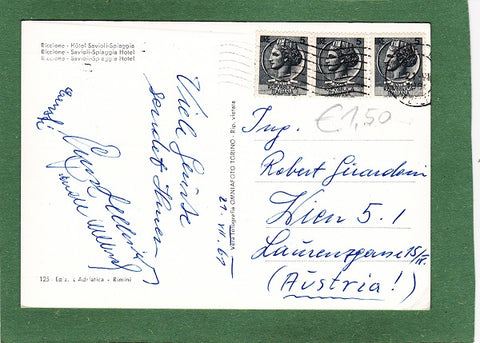 Riccione - Hôtel Savioli-Spiaggia
Riccione - Savioli-Spiaggia Hotel
Riccione - Savioli-Spiaggia Hotel
Viele Grüsse
sendet Ihnen
21. VII. 69
Vera fotografia OMNIAFOTO TORINO - Rip. vietata
125 - Ediz. Adriatica - Rimini
€1,50
Ing.
Robert Girardoni
Wien 5.1
Laurenzgasse 15/IV.
(Austria!)